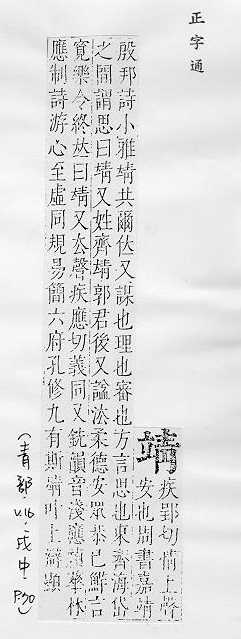 正字通
靖
疾郢切情上聲
安也周書嘉靖
殷邦詩小雅靖共爾位又謀也理也審也方言思也東齊海岱
之閒謂思曰靖又姓齊靖郭君後又諡法柔德安眾恭己鮮言
寬樂令終𠀤曰靖又去聲疾應切義同又銑韻音淺應禎華林
應制詩游心至虛同規易簡六府孔修九有斯靖叶上辯顯
(青部 V.16, 戌中 P.30)